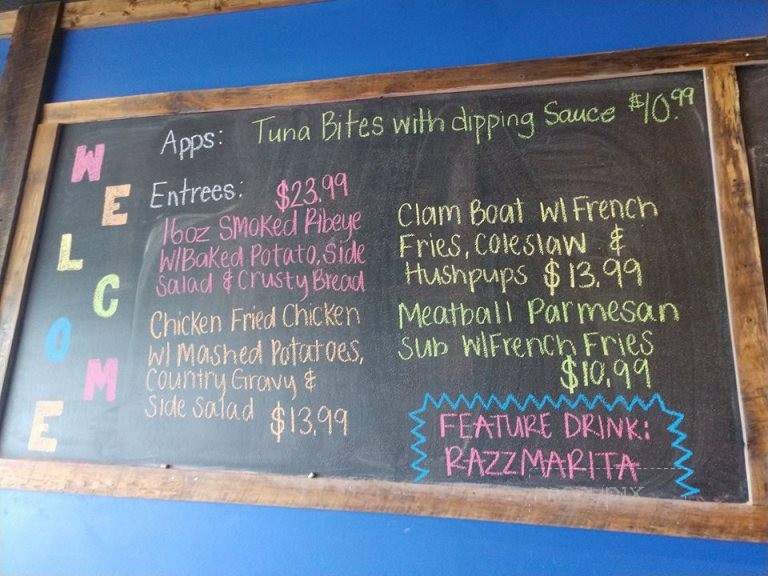 WELCOME
Apps: Tuna Bites with dipping Sauce $10.99
Entrees: $23.99
16oz Smoked Ribeye
W/Baked Potato, Side
Salad & Crusty Bread
Chicken Fried Chicken
w/ Mashed Potatoes,
Country Gravy &
Side Salad $13.99
Clam Boat w/ French
Fries, Coleslaw &
Hushpups $13.99
Meatball Parmesan
Sub w/French Fries
$10.99
FEATURE DRINK:
RAZZMARITA